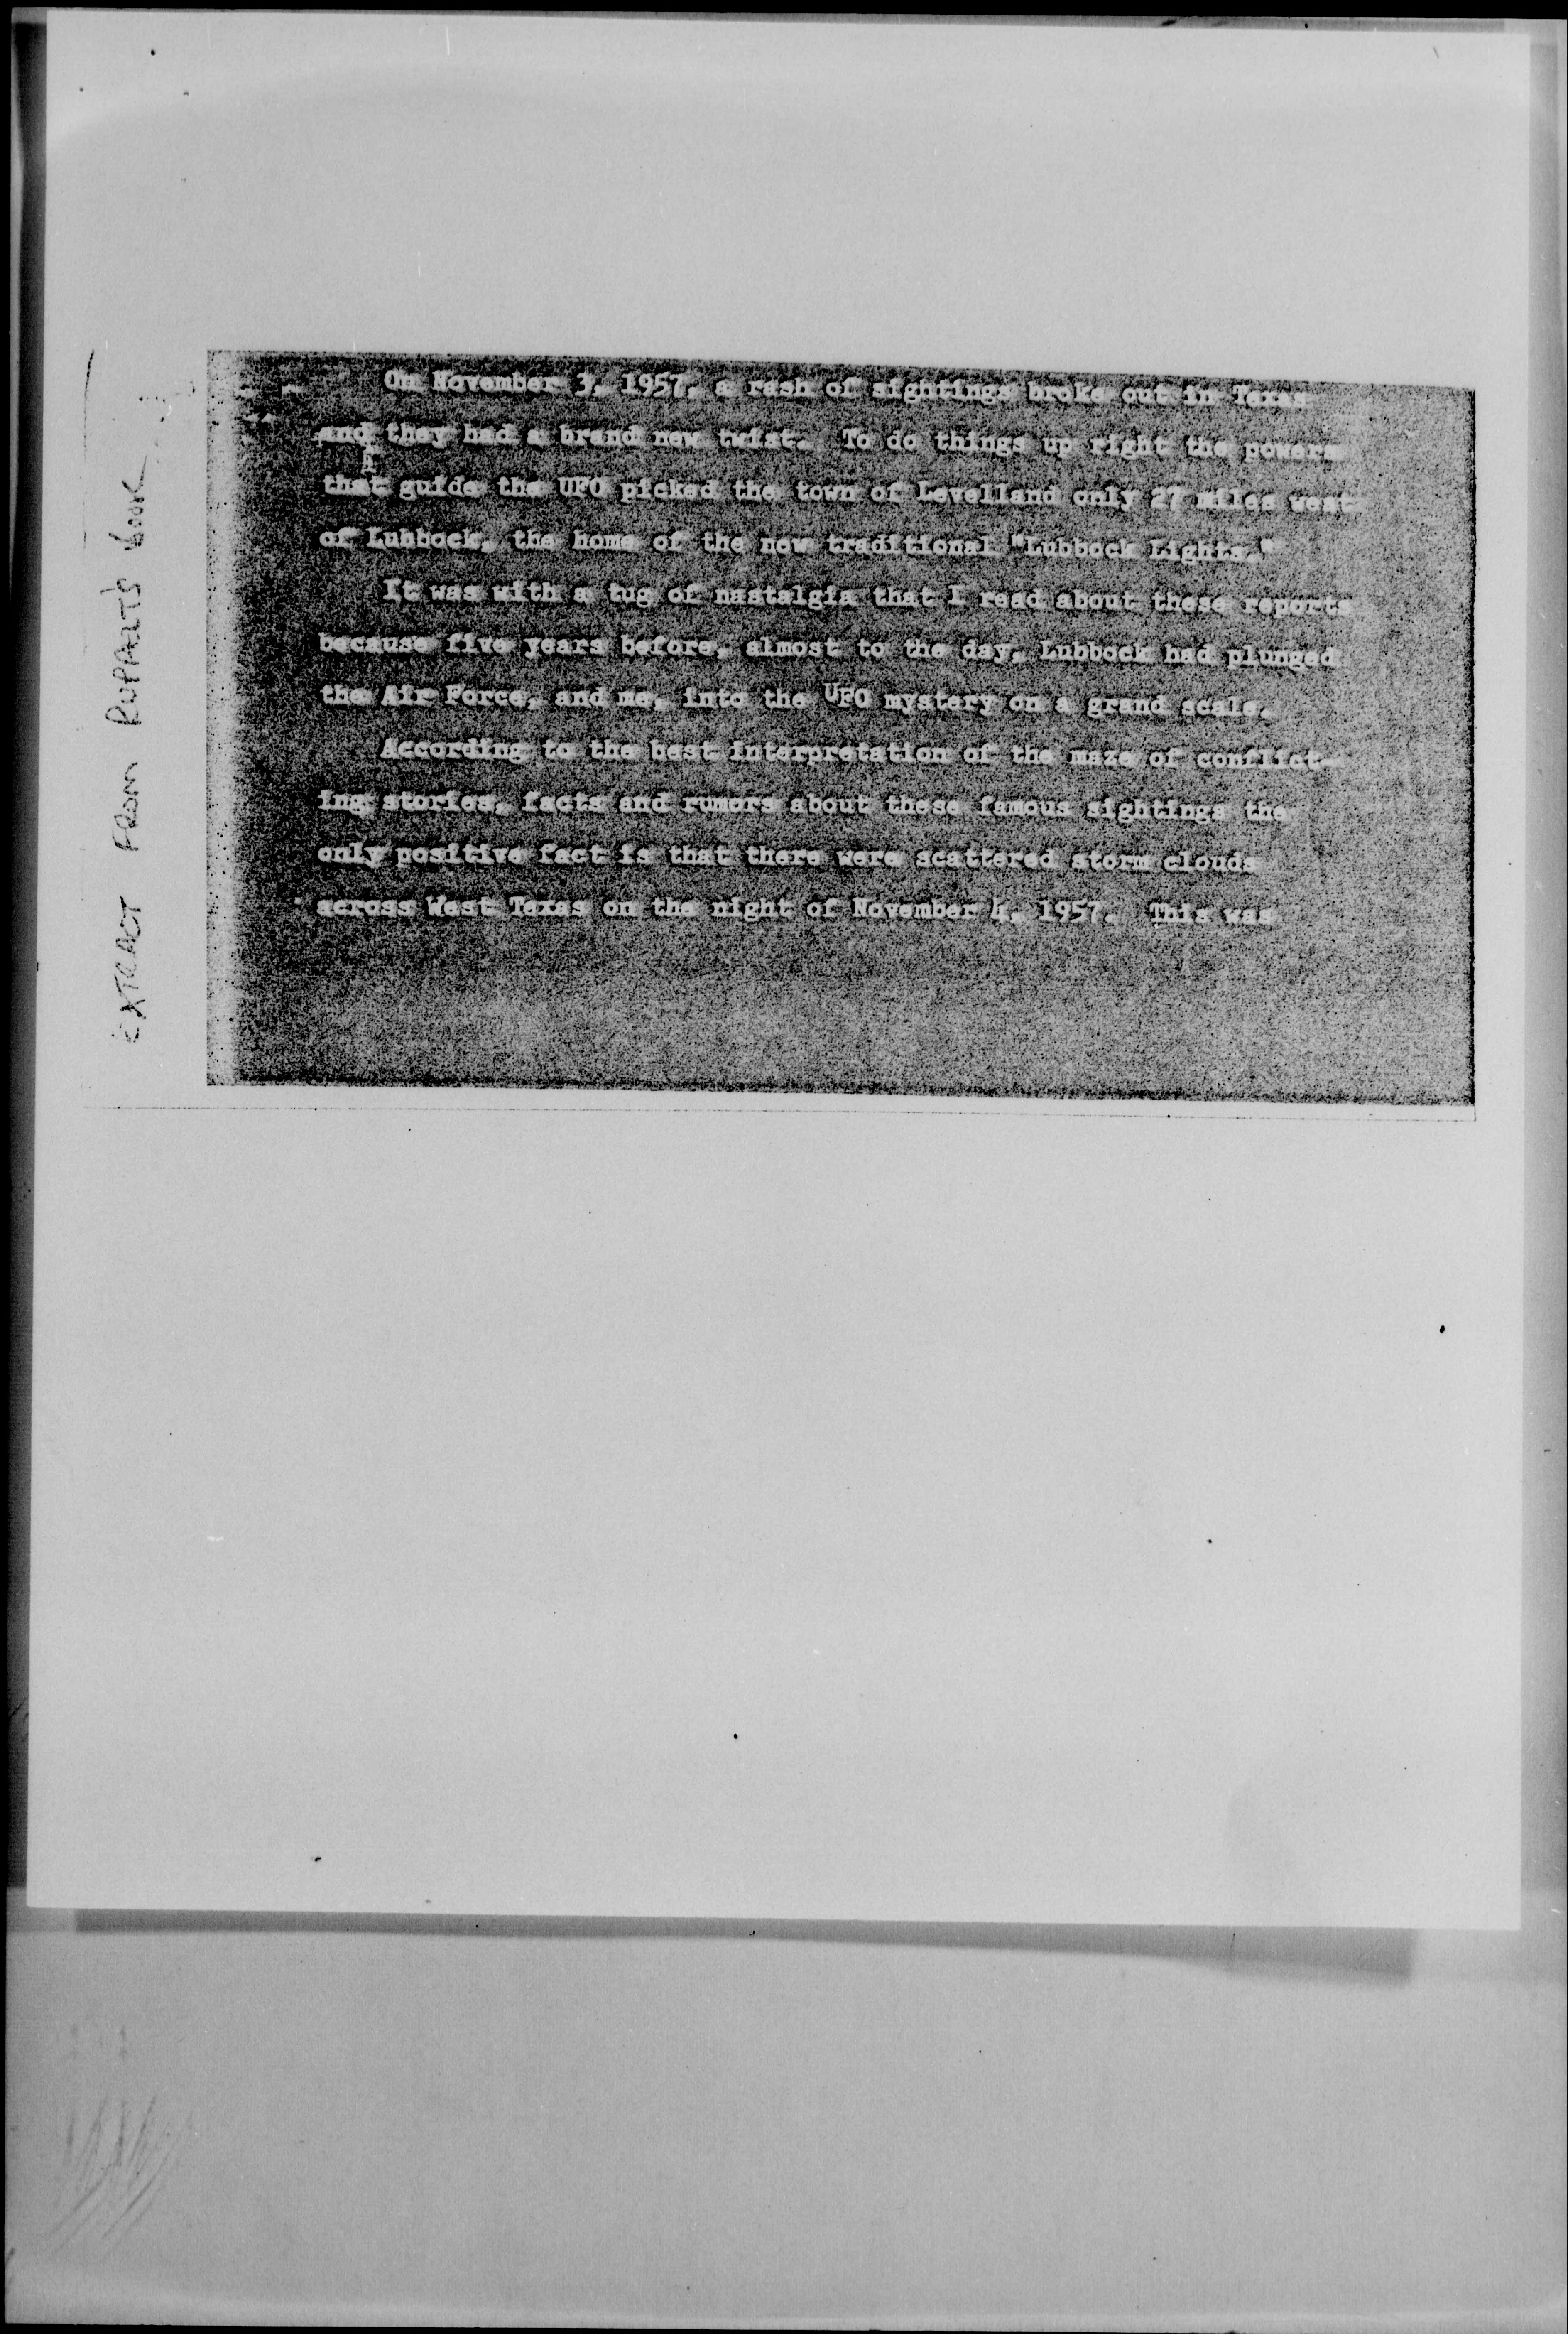 EXTRACT FROM RUPPALT'S BOOK
On November 3, 1957, a rash of sightings broke out in Texas
and they had a brand new twist. To do things up right the powers
that guide the UFO picked the town of Levelland only 27 miles west
of Lubbock, the home of the now traditional "Lubbock Lights."
It was with a tug of nastalgia that I read about these reports
because five years before, almost to the day, Lubbock had plunged
the Air Force, and me, into the UFO mystery on a grand scale.
According to the best interpretation of the maze of conflict-
ing stories, facts and rumors about these famous sightings the
only positive fact is that there were scattered storm clouds
across West Texas on the night of November 4, 1957. This was